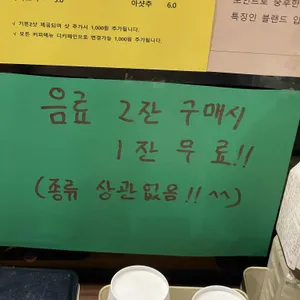 아샷추 6.0
√ 기본2샷 제공되며 샷 추가시 1,000원 추가됩니다.
√ 모든 커피메뉴 디카페인으로 변경가능 1,000원 추가됩니다.
특징인 블랜드
음료 2잔 구매시
1잔 무료!!
(종류 상관없음!! ^^)